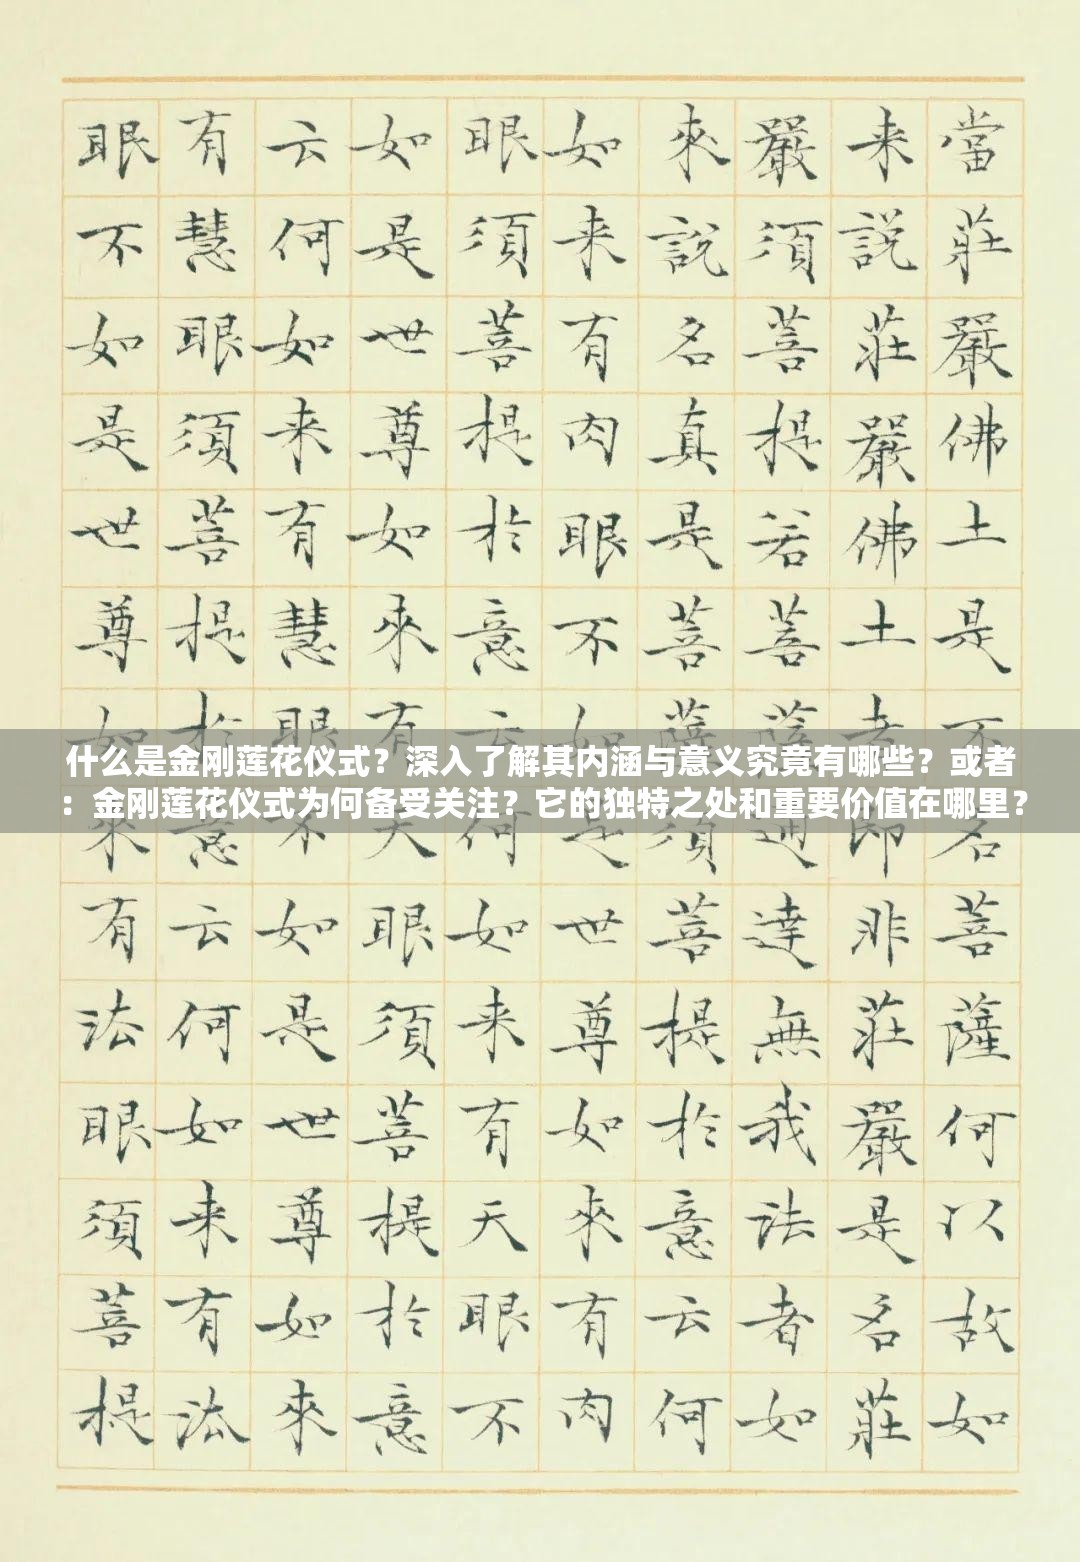 當莊嚴佛土是不名菩薩何以故如
来説莊嚴佛土者即非莊嚴是名莊
嚴須菩提若菩薩通達無我法者如
來説名真是菩薩須菩提於意云何
如来有肉眼不如是世尊如來有肉
眼須菩提於意云何如来有天眼不
如是世尊如來有天眼須菩提於意
云何如来有慧眼不如是世尊如來
有慧眼須菩提於意云何如来有法
眼不如是世尊如來有法眼須菩提
什么是金刚莲花仪式？深入了解其内涵与意义究竟有哪些？或者
：金刚莲花仪式为何备受关注？它的独特之处和重要价值在哪里？